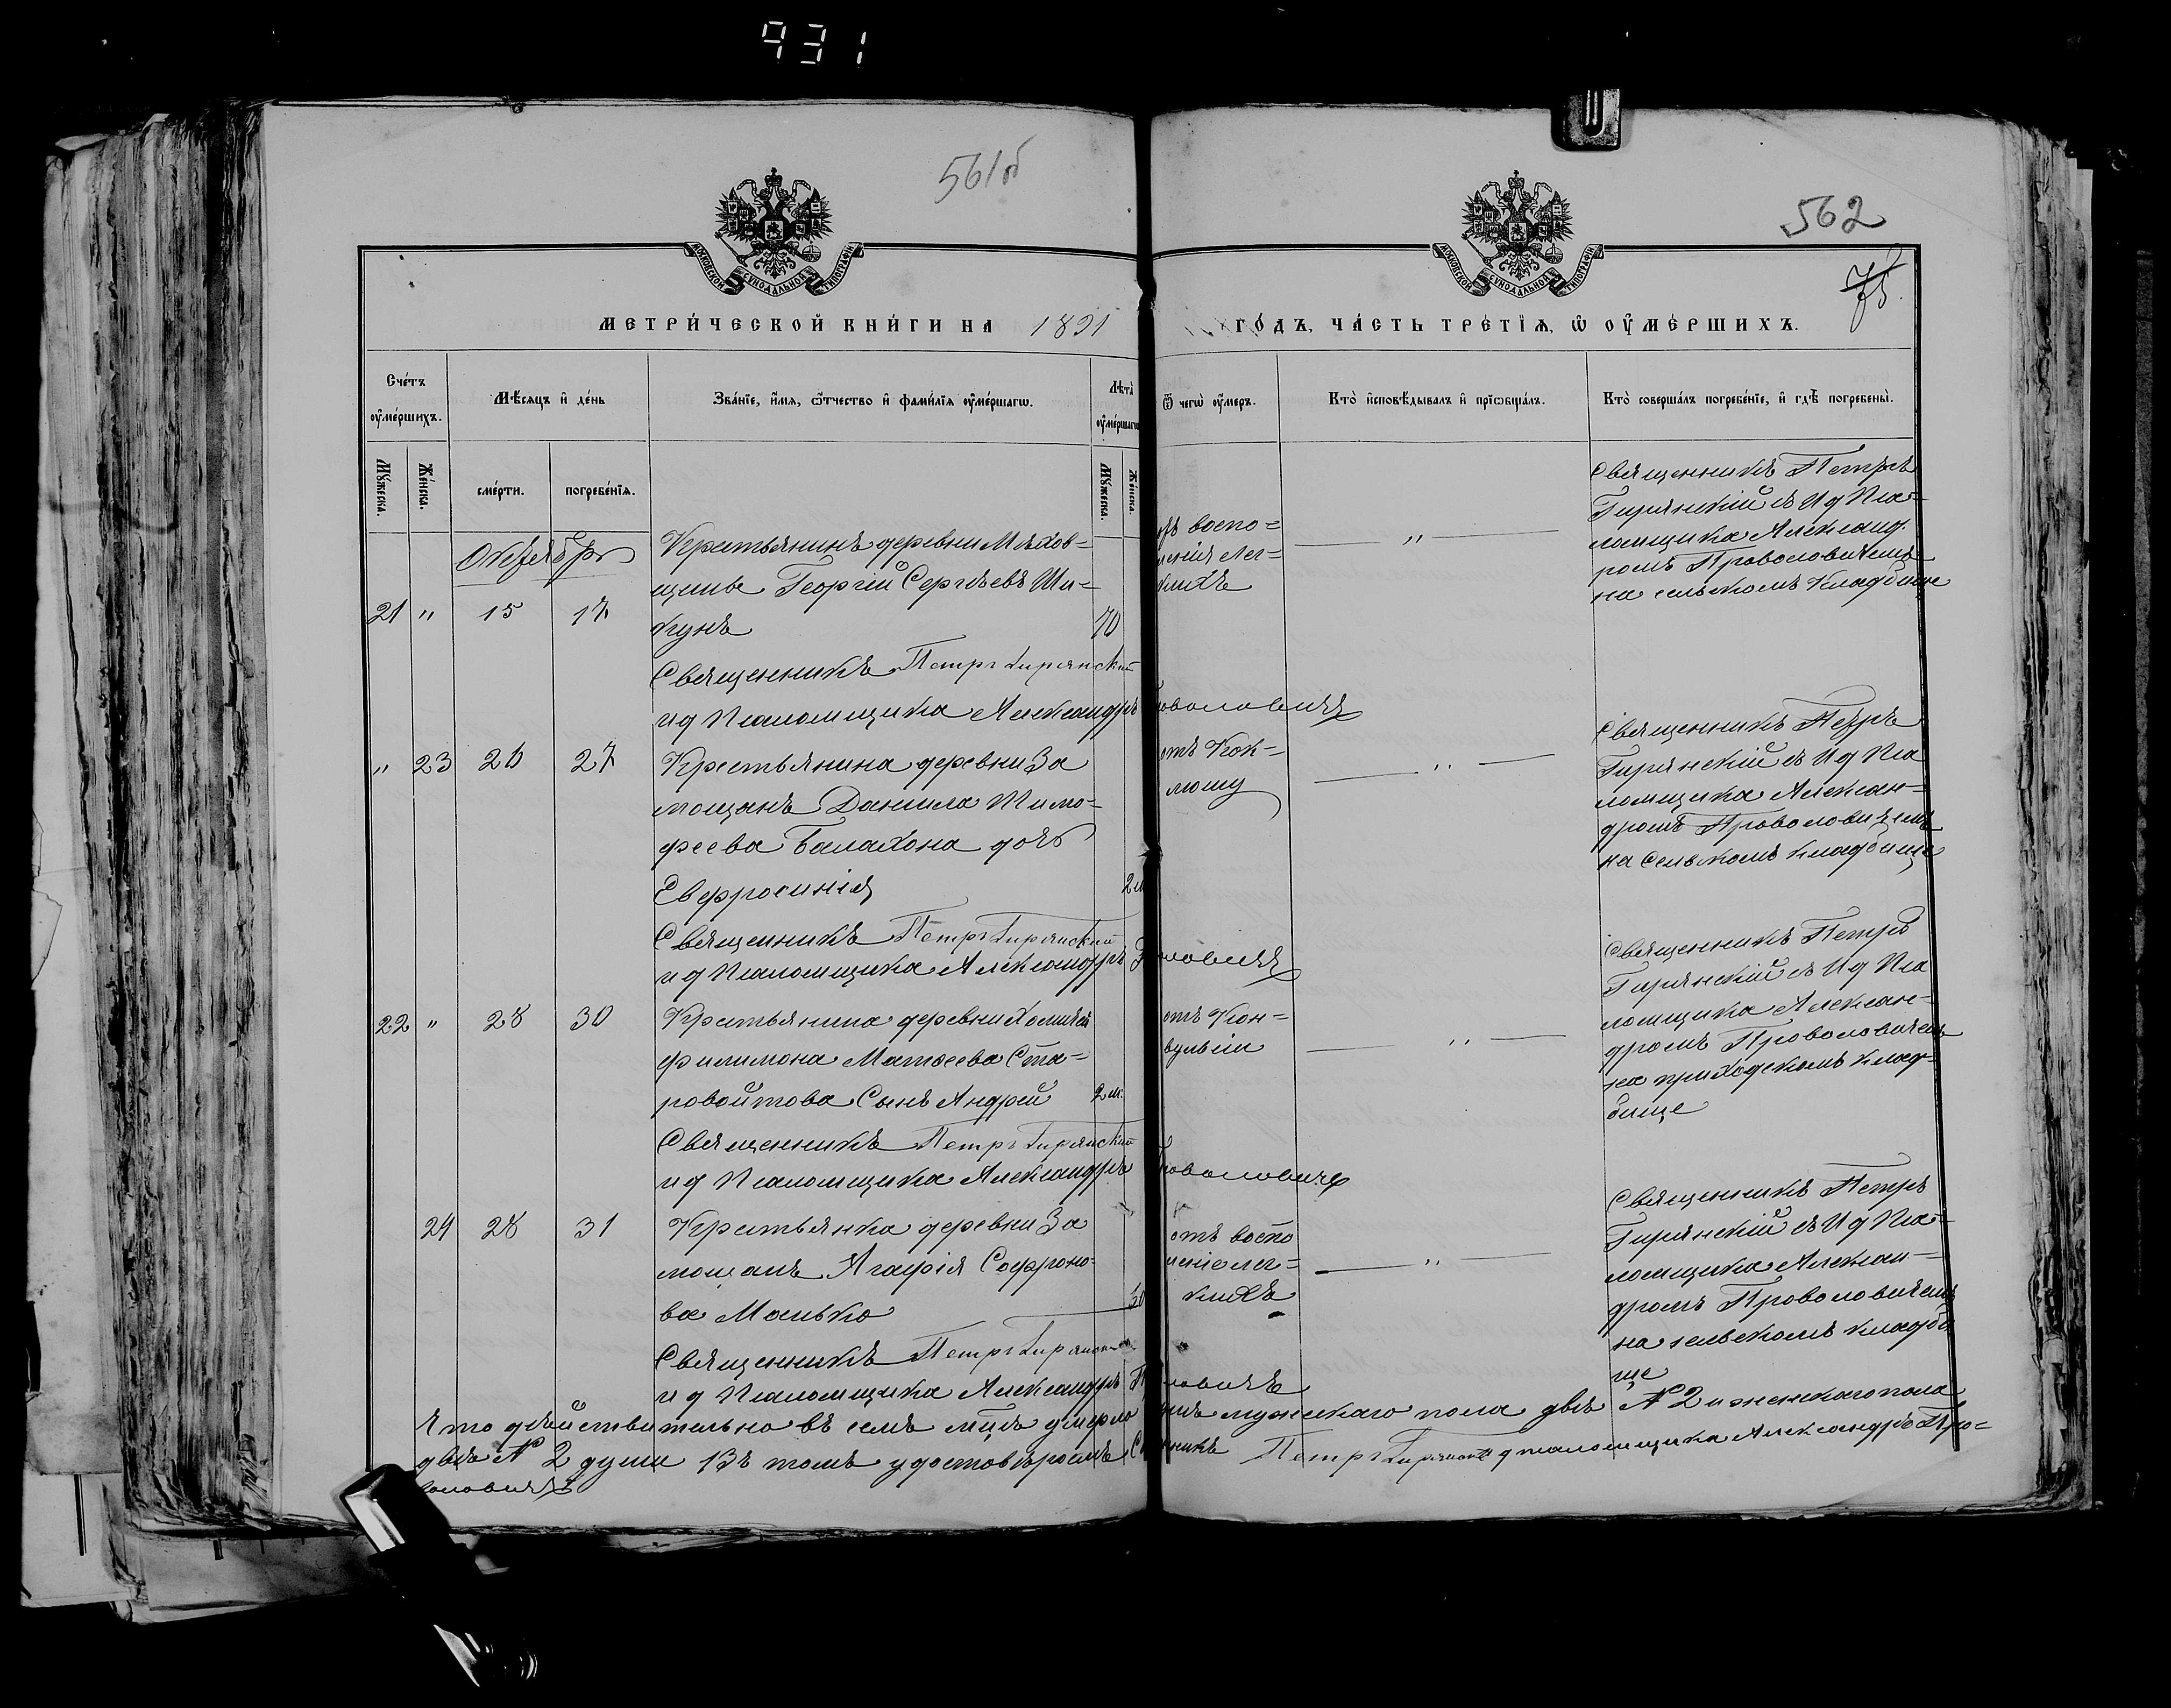 931
561б
562
75
МОСКОВСКОЙ СѴНОДАЛЬНОЙ ТИПОГРАФІИ
МОСКОВСКОЙ СѴНОДАЛЬНОЙ ТИПОГРАФІИ
МЕТРИ́ЧЕСКОЙ КНИ́ГИ НА 1891 ГО́ДЪ, ЧА́СТЬ ТРЕ́ТЇѦ, Ѡ҆ ОУ҆МЕ́РШИХЪ.
Сче́тъ оу҆ме́ршихъ.
Мѣ́сяцъ и҆ де́нь
Зва́нїе, и҆́мѧ, ѻ҆́тчество и҆ фами́лїѧ оу҆ме́ршагѡ.
Лѣта̀ оу҆ме́ршагѡ
Ѿ чегѡ̀ оу҆́меръ.
Кто̀ и҆сповѣ́дывалъ и҆ прїѡбща́лъ.
Кто̀ соверша́лъ погребе́нїе, и҆ гдѣ̀ погребены̀.
Мꙋ́жеска.
Же́нска.
сме́рти.
погребе́нїѧ.
Мꙋ́жеска.
Же́нска.
Октябрь
21 " 15 17
Крестьянинъ деревни Мѣхов=
щины Георгій Сергѣевъ Ши=
кунъ
70
воспо=
ленія лег=
кихъ
"
Священникъ Петръ
Гирянскій съ И д Пса=
ломщика Александ
ромъ Проволовичемъ
на сельскомъ кладбище
Священникъ Петръ Гирянскій
и д Псаломщика Александръ Проволовичъ
" 23 26 27
Крестьянина деревни За
мощанъ Даніила Тимо=
феева Балахона дочь
Евфросинія
2 м
отъ Кок=
люшу
"
Священникъ Петръ
Гирянскій съ И д Пса
ломщика Алексан=
дромъ Проволовичемъ
на Сельскомъ кладбище
Священникъ Петръ Гирянскій
и д Псаломщика Александръ Проволовичъ
22 " 28 30
Крестьянина деревни
Филимона Матѳеева Ста=
ровойтова Сынъ Андрей
2 м.
отъ Кон=
вульсіи
"
Священникъ Петръ
Гирянскій съ И д Пса
ломщика Алексан=
дромъ Проволовичемъ
на приходскомъ клад=
бище
Священникъ Петръ Гирянскій
и д Псаломщика Александръ Проволовичъ
24 28 31
Крестьянка деревни За
мощанъ Агафія Софроно=
ва Манько
30
отъ воспо
леніе лег=
кихъ
"
Священникъ Петръ
Гирянскій съ И д Пса=
ломщика Алексан=
дромъ Проволовичемъ
на сельскомъ кладби
ще
Священникъ Петръ Гирянскій
и д Псаломщика Александръ Проволовичъ
Что дѣйствительно въ семъ мцѣ умерло мужескаго пола двѣ № 2 и женскаго пола
двѣ № 2 души въ томъ удостовѣряемъ Священникъ Петръ Гирянскій и д псаломщика Александръ Про=
воловичъ